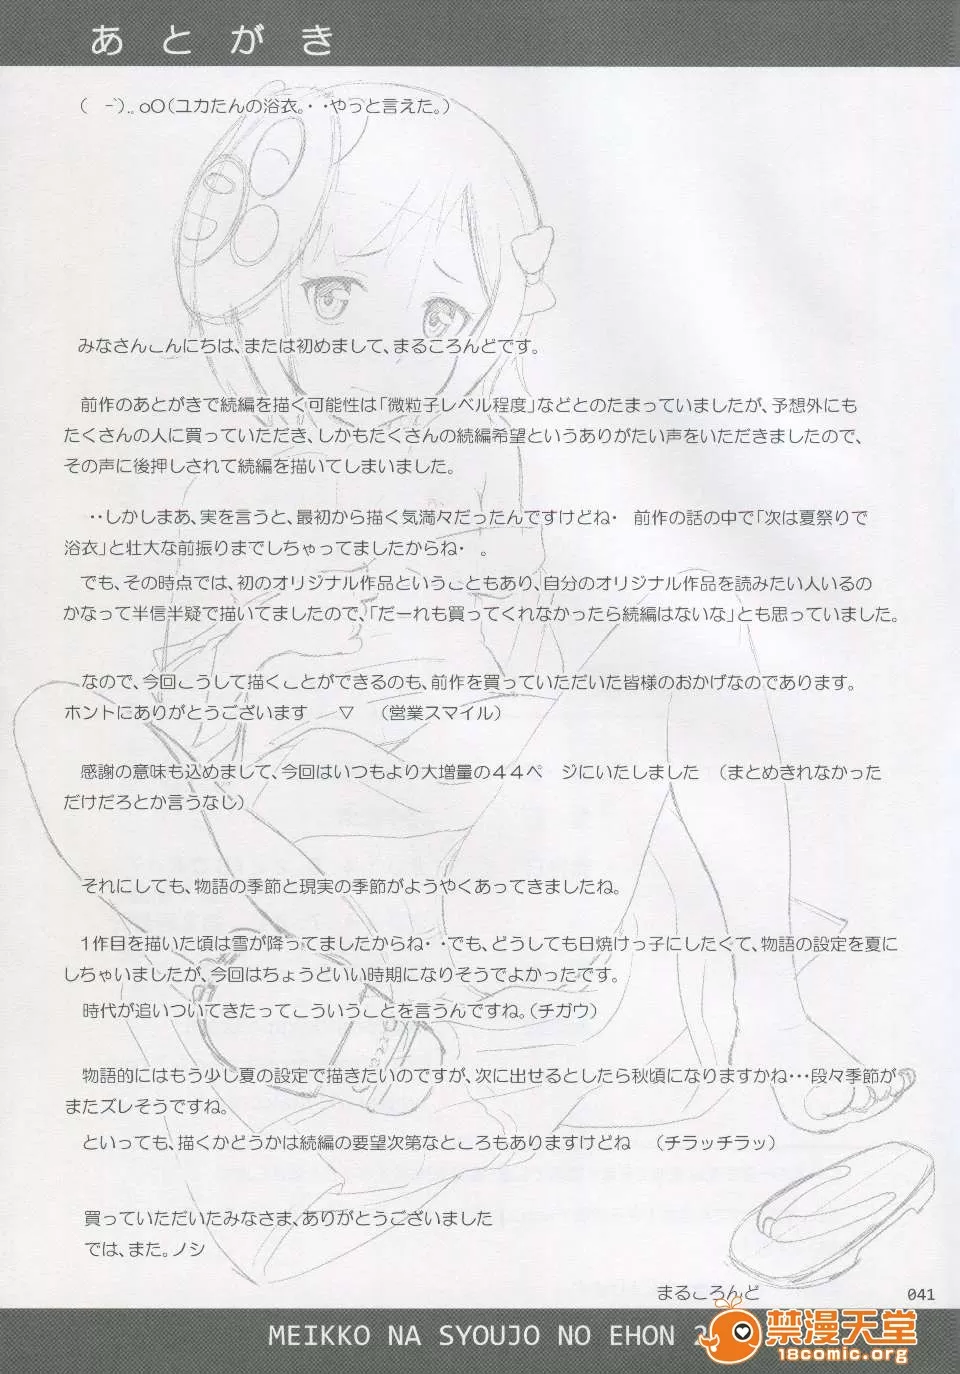 あとがき
( -`).｡oO(ユカたんの浴衣。・・やっと言えた。)
みなさんこんにちは、または初めまして、まるころんどです。
前作のあとがきで続編を描く可能性は「微粒子レベル程度」などとのたまっていましたが、予想外にも
たくさんの人に買っていただき、しかもたくさんの続編希望というありがたい声をいただきましたので、
その声に後押しされて続編を描いてしまいました。
・・しかしまあ、実を言うと、最初から描く気満々だったんですけどね・ 前作の話の中で「次は夏祭りで
浴衣」と壮大な前振りまでしちゃってましたからね・ 。
でも、その時点では、初のオリジナル作品ということもあり、自分のオリジナル作品を読みたい人いるの
かなって半信半疑で描いてましたので、「だーれも買ってくれなかったら続編はないな」とも思っていました。
なので、今回こうして描くことができるのも、前作を買っていただいた皆様のおかげなのであります。
ホントにありがとうございます ▽ (営業スマイル)
感謝の意味も込めまして、今回はいつもより大増量の44ペ ジにいたしました (まとめきれなかった
だけだろとか言うなし)
それにしても、物語の季節と現実の季節がようやくあってきましたね。
1作目を描いた頃は雪が降ってましたからね・・でも、どうしても日焼けっ子にしたくて、物語の設定を夏に
しちゃいましたが、今回はちょうどいい時期になりそうでよかったです。
時代が追いついてきたってこういうことを言うんですね。(チガウ)
物語的にはもう少し夏の設定で描きたいのですが、次に出せるとしたら秋頃になりますかね・・・段々季節が
またズレそうですね。
といっても、描くかどうかは続編の要望次第なところもありますけどね (チラッチラッ)
買っていただいたみなさま、ありがとうございました
では、また。ノシ
まるころんど
041
MEIKKO NA SYOUJO NO EHON 2
禁漫天堂
18comic.org